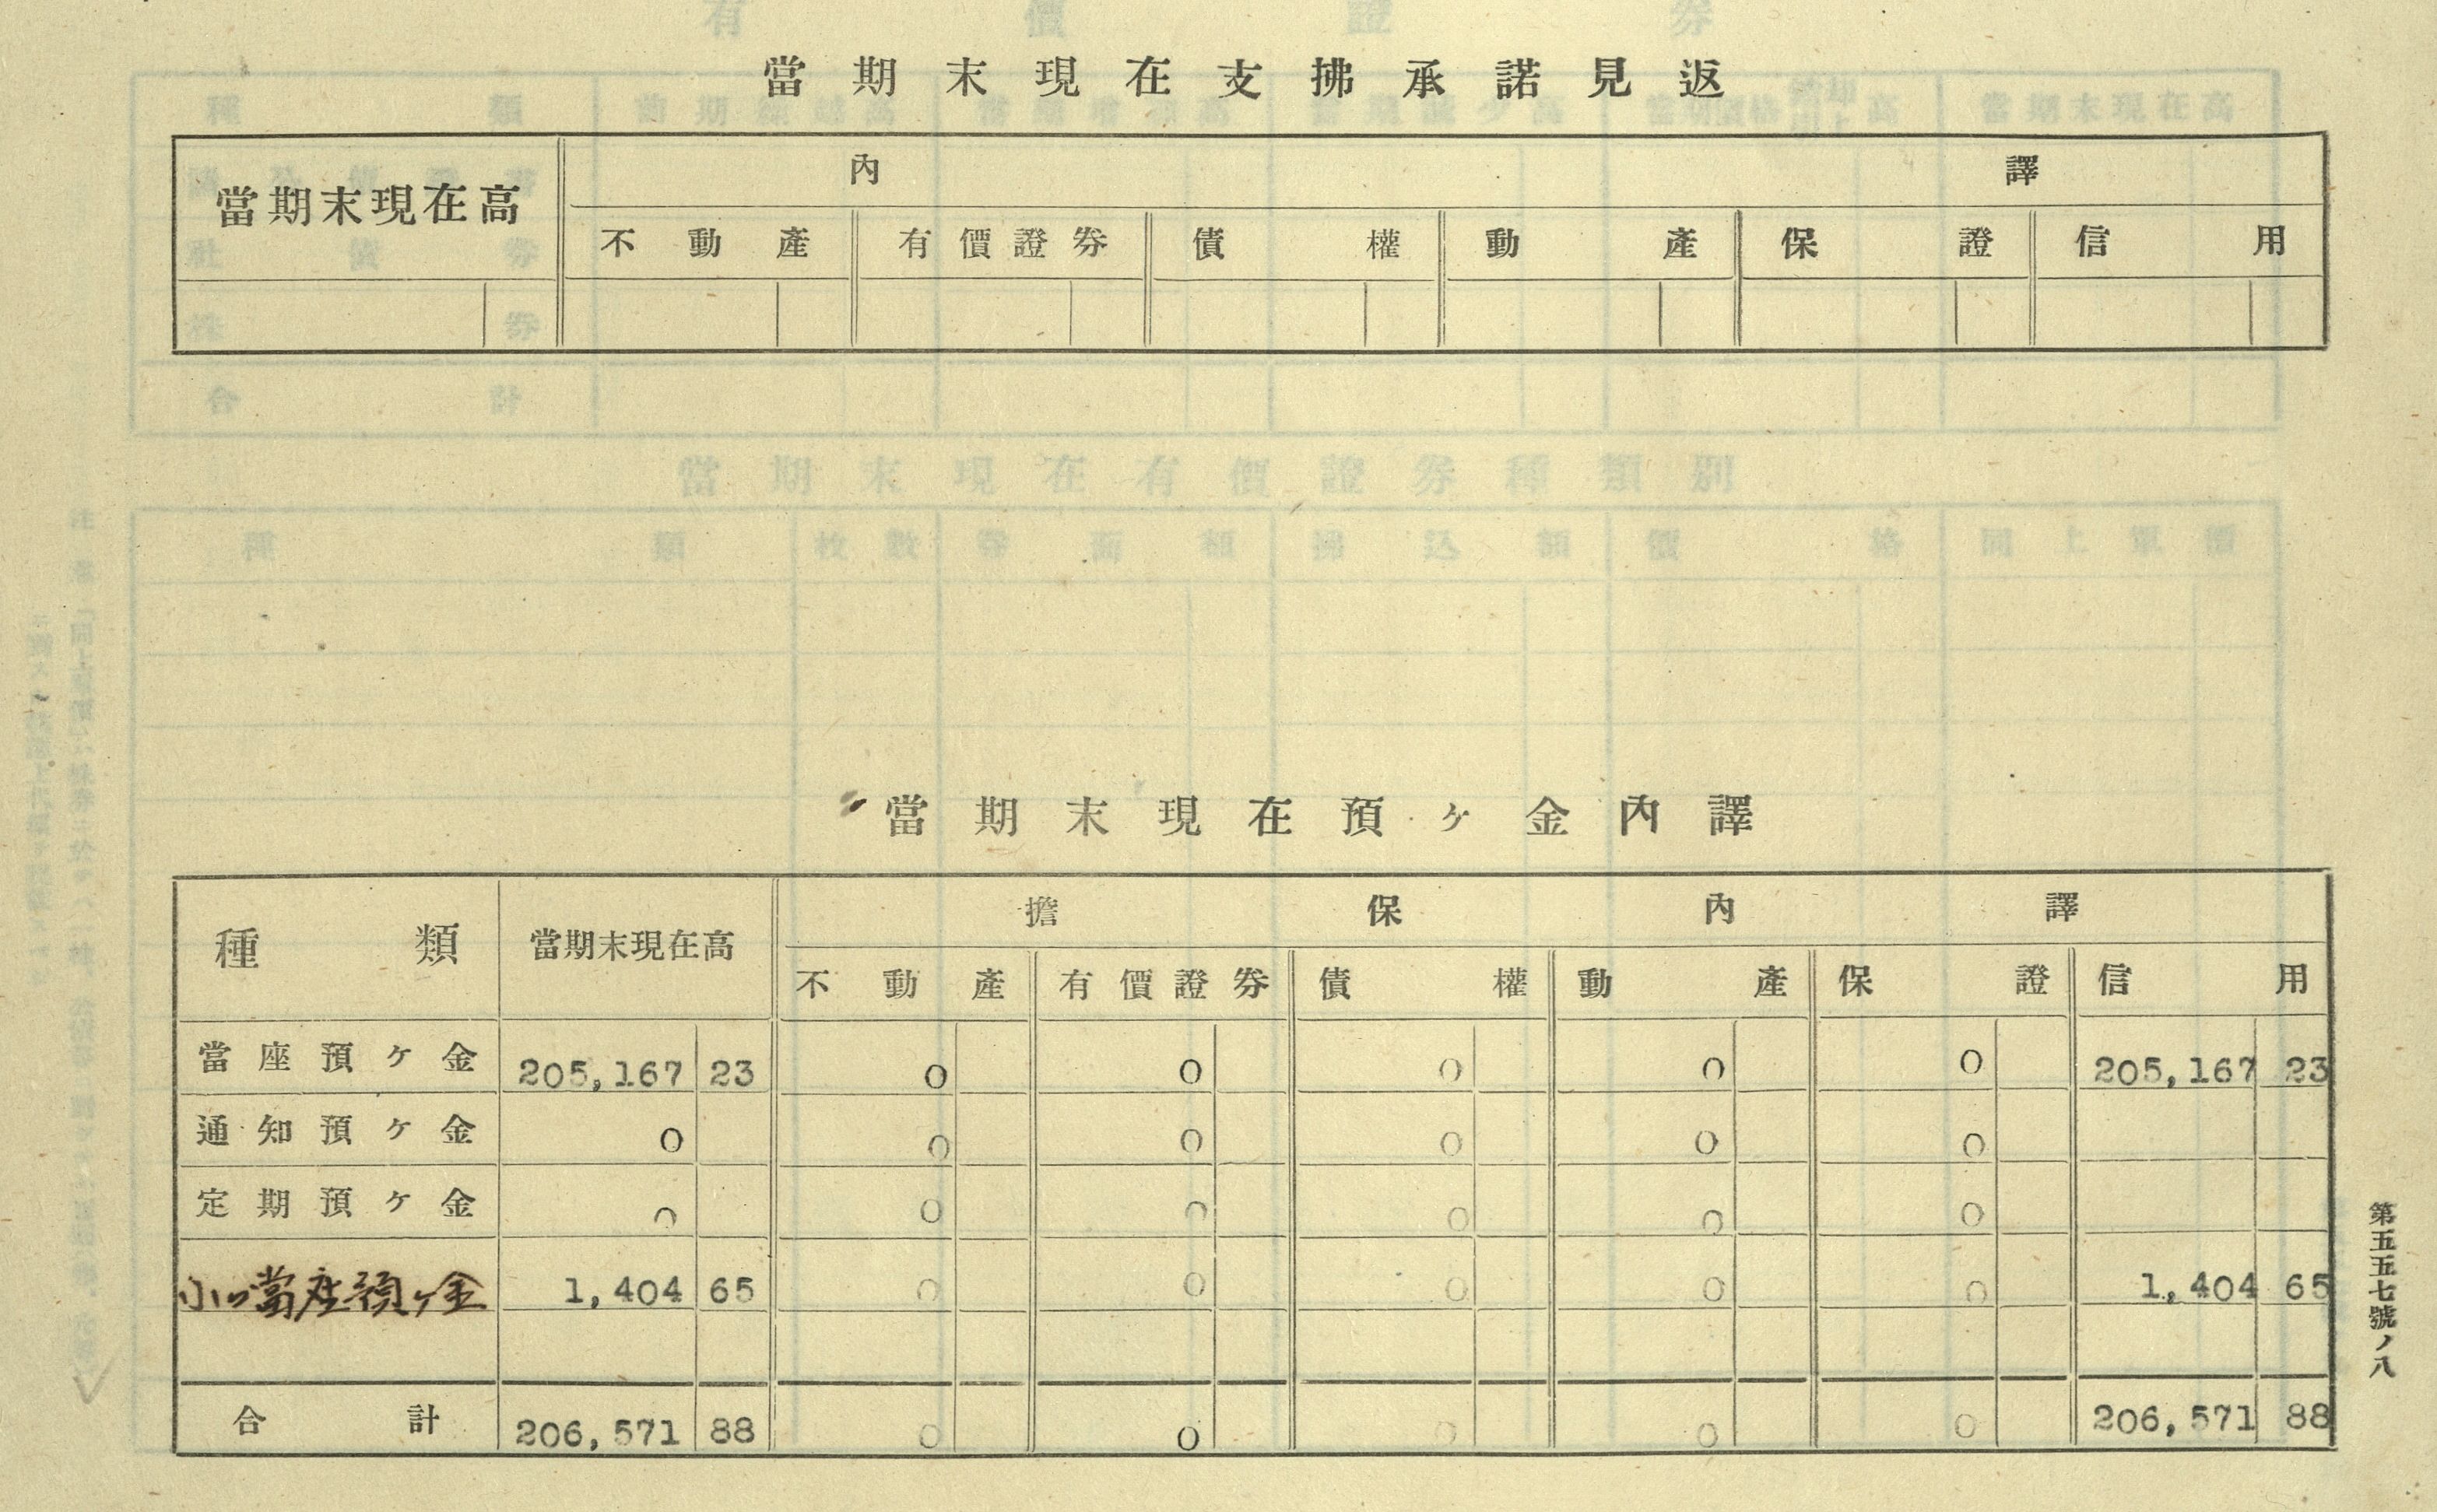 當期末現在支拂承諾見返
當期末現在高 內譯
不動產 有價證券 債權 動產 保證 信用
當期末現在預ヶ金內譯
種類 當期末現在高 擔保內譯
不動產 有價證券 債權 動產 保證 信用
當座預ヶ金 205,167 23 0 0 0 0 0 205,167 23
通知預ヶ金 0 0 0 0 0 0
定期預ヶ金 0 0 0 0 0 0
小口當座預ヶ金 1,404 65 0 0 0 0 0 1,404 65
合計 206,571 88 0 0 0 0 0 206,571 88
第五五七號ノ八